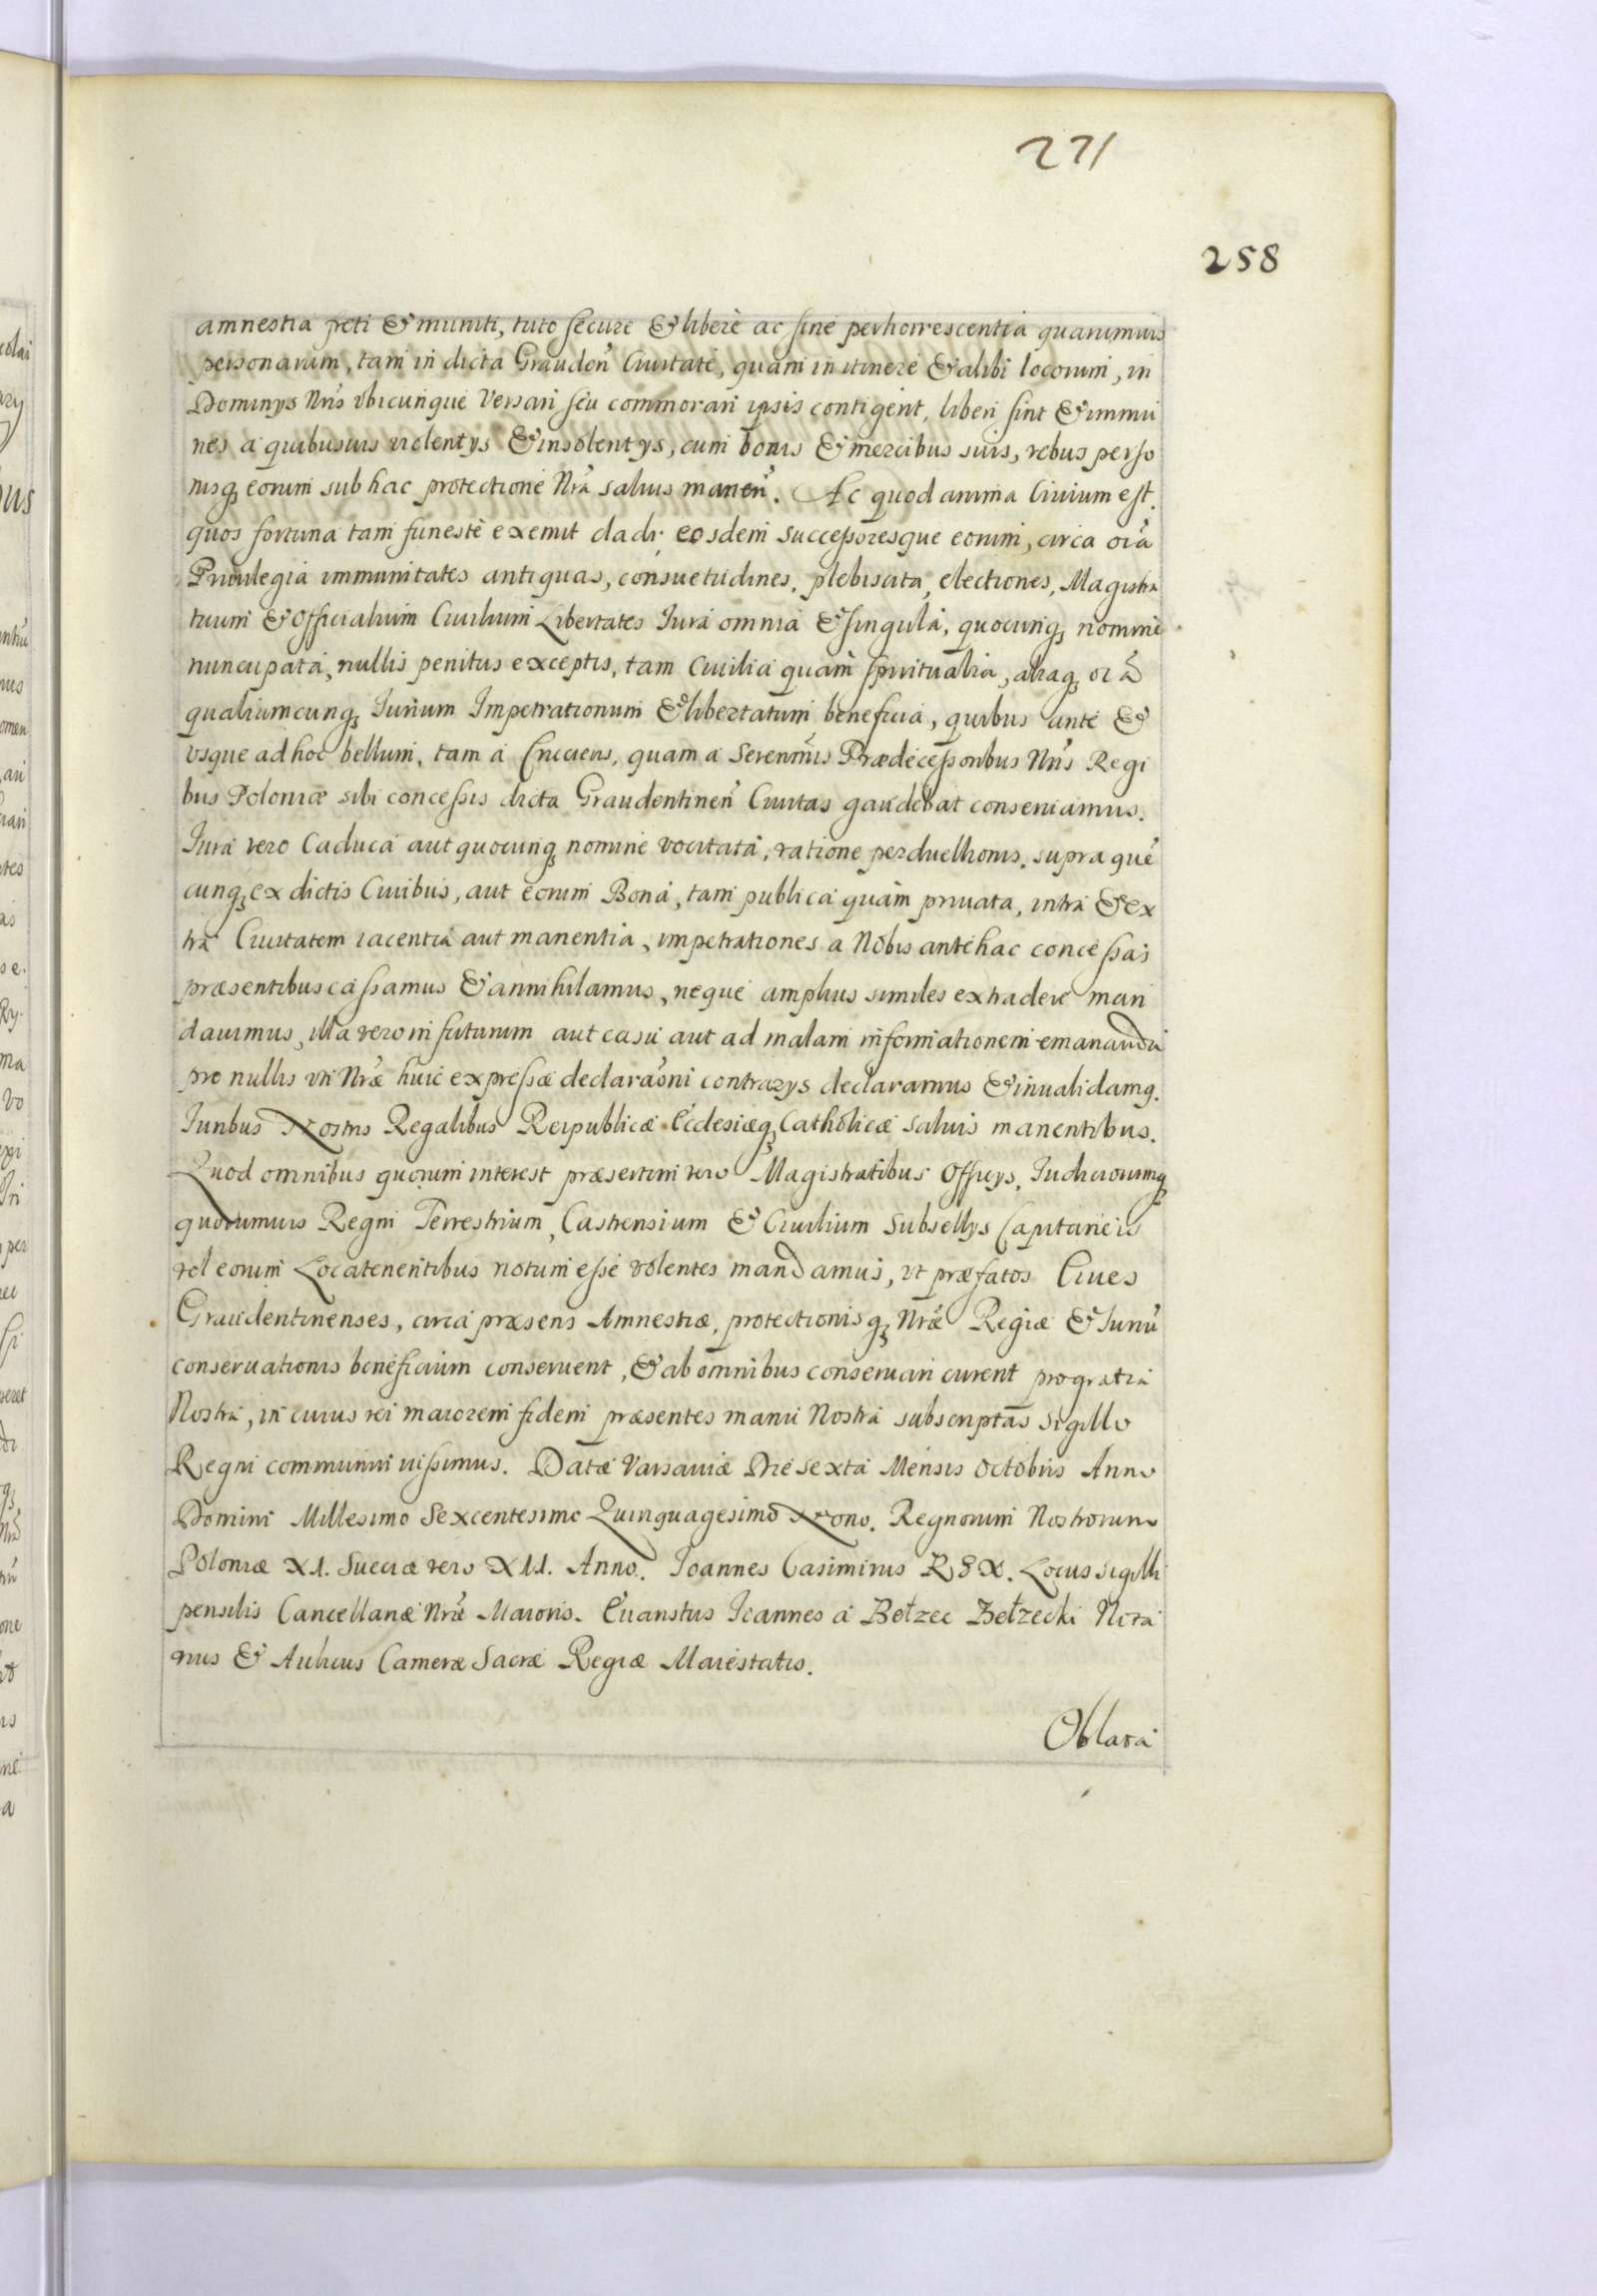 271
258
amnestia freti & muniti, tuto secure & liberè ac sine perhorrescentia quarumuis
personarum, tam in dicta Grauden̄ Ciuitate, quam in itinere & alibi locorum, in
Dominys Nrīs vbicunque versari seu commorari ipsis contigerit, liberi sint & immu
nes a quibusuis violentys & insolentys, cum bonis & mercibus suis, rebus perso
nisq, eorum sub hac protectione Nrā saluis manen̄. Ac quod anima Ciuium est.
quos fortuna tam funestè exemit cladi, eosdem successoresque eorum, circa oīa
Priuilegia immunitates antiquas, consuetudines, plebiscita, electiones, Magistra
tuum & Officialium Ciuilium Libertates Iura omnia & singula, quocunq, nomine
nuncupata, nullis penitus exceptis, tam Ciuilia quàm spiritualia, aliaq, oīa
qualiumcunq, Iurium Impetrationum & libertatum beneficia, quibus ante &
vsque ad hoc bellum, tam a Cruciferis, quam a Serenmīs Prædecessoribus Nrīs Regi
bus Poloniæ sibi concessis dicta Graudentinen̄ Ciuitas gaudebat conseruamus.
Iura vero Caduca aut quocunq, nomine vocitata, ratione perduellionis, supra quē
cunq, ex dictis Ciuibus, aut eorum Bona, tam publica quàm priuata, intra & ex
tra Ciuitatem iacentia aut manentia, impetrationes a Nobis antehac concessas
præsentibus cassamus & annihilamus, neque amplius similes extradere man
dauimus, illa vero in futurum aut casu aut ad malam informationem emananda
pro nullis vti Nrǣ huic expressæ declarāoni contrarys declaramus & inualidamq.
Iuribus Nostris Regalibus Reipublicæ Ecclesiæq, Catholicæ saluis manentibus.
Quod omnibus quorum interest præsertim vero Magistratibus Officys, Iudiciorumq,
quorumuis Regni Terrestrium, Castrensium & Ciuilium Subsellys Capitaneis
vel eorum Locatenentibus notum esse volentes mandamus, vt præfatos Ciues
Graudentinenses, circa præsens Amnestiæ, protectionisq, Nrǣ Regiæ & Iuriū
conseruationis beneficium conseruent, & ab omnibus conseruari curent pro gratia
Nostra, in cuius rei maiorem fidem præsentes manu Nostra subscriptas sigillo
Regni communiri iussimus. Datæ Varsauiæ Die sexta Mensis Octobris Anno
Domini Millesimo Sexcentesimo Quinquagesimo Nono. Regnorum Nostrorum
Poloniæ XI. Sueciæ vero XII. Anno. Ioannes Casimirus REX. Locus sigilli
pensilis Cancellariæ Nrǣ Maioris. Euaristus Ioannes à Bełzec Bełzecki Nota
rius & Aulicus Cameræ Sacræ Regiæ Maiestatis.
Oblata